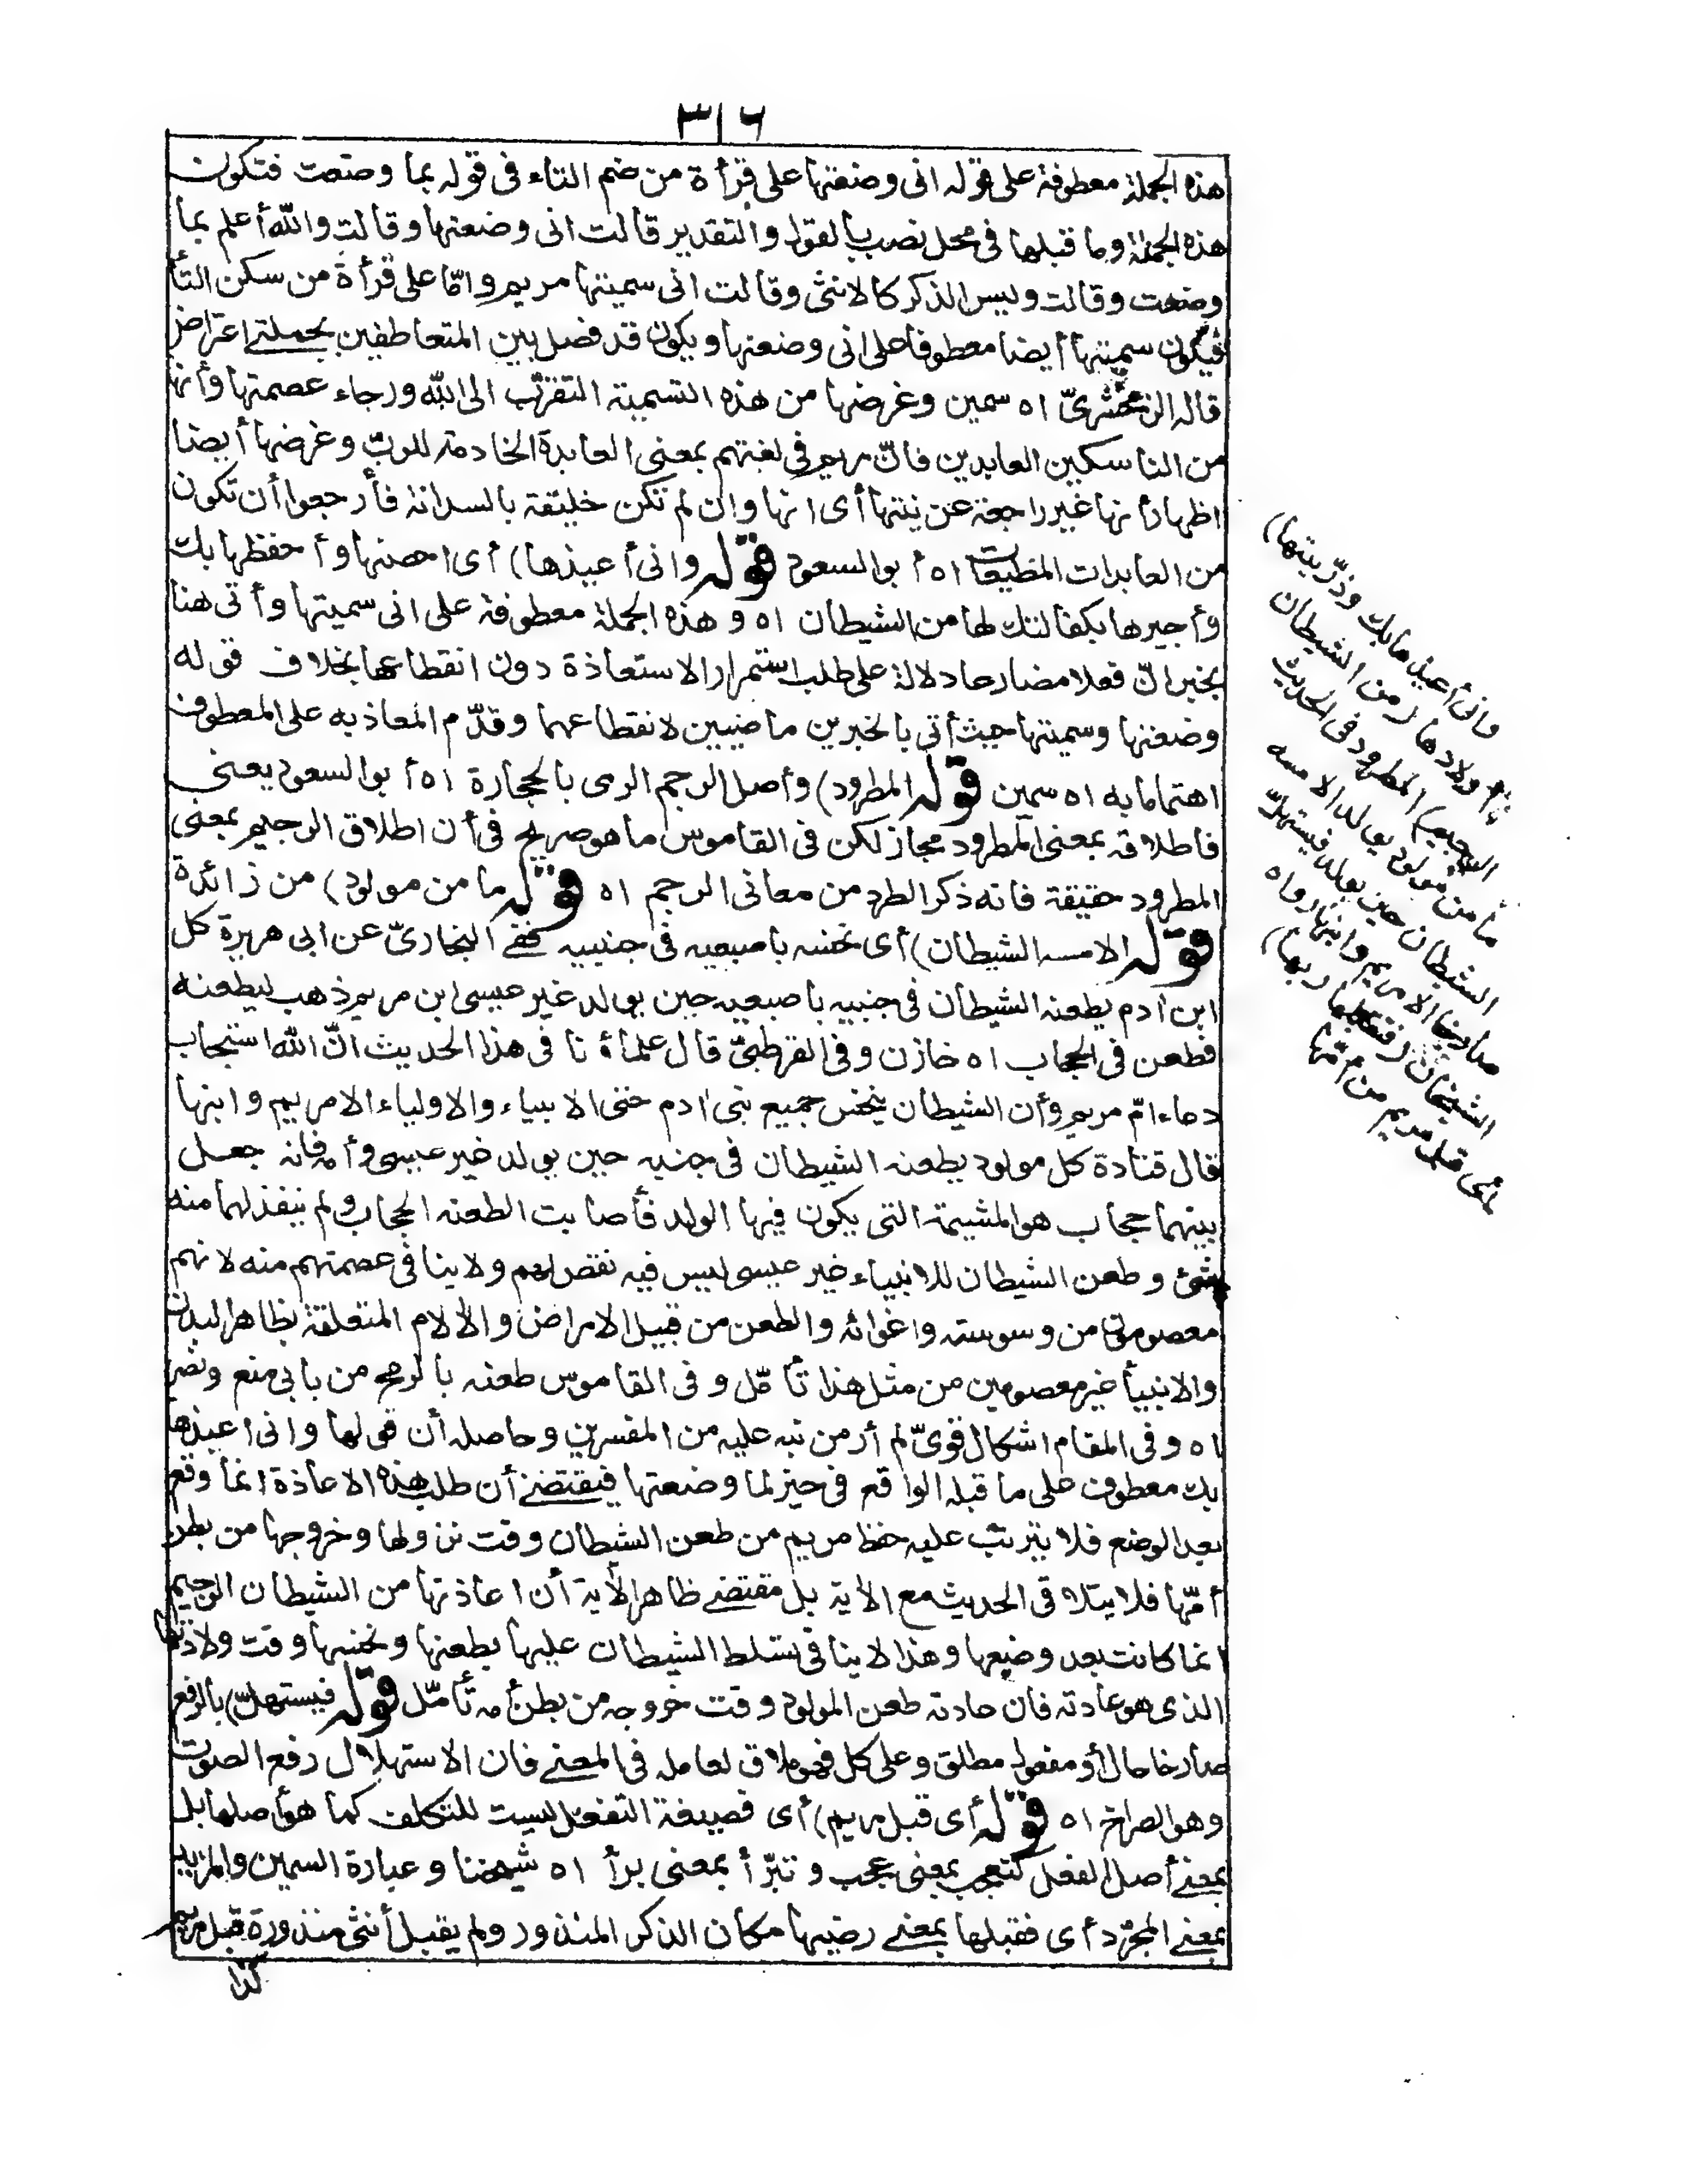 ٣١٦
هذه الجملة معطوفة على قوله انى وضعتها على قرأة من ضم التاء فى قوله بما وضعت فتكون
هذه الجملة وما قبلها فى محل نصب بالقول والتقدير قالت انى وضعتها وقالت والله أعلم بما
وضعت وقالت وليس الذكر كالانثى وقالت انى سميتها مريم وامّا على قرأة من سكن التأ
فيكون سميتها أيضا معطوفا على انى وضعتها ويكون قد فصل بين المتعاطفين بجملتى اعتراض
قاله الزمخشرىّ اه سمين وغرضها من هذه التسمية التقرّب الى الله ورجاء عصمتها وأنها
من الناسكين العابدين فانّ مريم فى لغتهم بمعنى العابدة الخادمة للربّ وغرضها أيضا
اظهار أنها غير راجعة عن نيتها أى انها وان لم تكن خليقة بالسدانة فأرجعوا أن تكون
من العابدات المطيعات اه أبو السعود قوله وانى أعيذها) أى احصنها وأحفظها بك
وأجيرها بكفالتك لها من الشيطان اه وهذه الجملة معطوفة على انى سميتها وأتى هنا
بخبر انّ فعلا مضارعا دلالة على طلب استمرار الاستعاذة دون انقطاعها بخلاف قوله
وضعتها وسميتها حيث أتى بالخبرين ماضيين لانقطاعهما وقدّم المعاذ به على المعطوف
اهتماما به اه سمين قوله المطرود) وأصل الرجم الرمى بالحجارة اه أبو السعود يعنى
فاطلاقه بمعنى المطرود مجاز لكن فى القاموس ما هو صريح فى أن اطلاق الرجيم بمعنى
المطرود حقيقة فانه ذكر الطرد من معانى الرجم اه قوله ما من مولود) من زائدة
قوله الا مسه الشيطان) أى نخسه باصبعيه فى جنبيه ففى البخارىّ عن ابى هريرة كل
ابن ادم يطعنه الشيطان فى جنبيه باصبعيه حين يولد غير عيسى ابن مريم ذهب ليطعنه
فطعن فى الحجاب اه خازن وفى القرطبىّ قال علمأؤنا فى هذا الحديث انّ الله استجاب
دعاء امّ مريم وأن الشيطان ينخس جميع بنى ادم حتى الانبياء والاولياء الا مريم وابنها
قال قتادة كل مولود يطعنه الشيطان فى جنبيه حين يولد غير عيسى وأمه فانه جعل
بينهما حجاب هو المشيمة التى يكون فيها الولد فأصابت الطعنه الحجاب ولم ينفذ لهما منه
شئ وطعن الشيطان للانبياء غير عيسى ليس فيه نقص لهم ولا ينافى عصمتهم منه لانهم
معصومون من وسوسته واغوائه والطعن من قبيل الامراض والالام المتعلقة بظاهر البدن
والانبيأ غير معصومين من مثل هذا تأمّل وفى القاموس طعنه بالرمح من بابى منع ونصر
اه وفى المقام اشكال قوىّ لم أر من نبه عليه من المفسرين وحاصله أن قولها وانى اعيذها
بك معطوف على ما قبله الواقع فى حيز لما وضعتها فيقتضى أن طلب هذه الاعاذة انما وقع
بعد الوضع فلا يترتب عليه حفظ مريم من طعن الشيطان وقت نزولها وخروجها من بطن
أمّها فلا يتلاقى الحديث مع الأية بل مقتضى ظاهر الأية أن اعاذتها من الشيطان الرجيم
انما كانت بعد وضعها وهذا لا ينافى تسلط الشيطان عليها بطعنها ونخسها وقت ولادتها
الذى هو عادته فان عادته طعن المولود وقت خروجه من بطن أمه تأمّل قوله فيستهلّ) بالرفع
صارخا حال أو مفعول مطلق وعلى كل فهو ملاق لعامله فى المعنى فان الاستهلال رفع الصوت
وهو الصراخ اه قوله أى قبل مريم) أى فصيغة التفعّل ليست للتكلف كما هو أصلها بل
بمعنى أصل الفعل كتعجب بمعنى عجب وتبرّأ بمعنى برأ اه شيخنا وعبارة السمين والمزيد
بمعنى المجرّد أى فقبلها بمعنى رضيها مكان الذكر المنذور ولم يقبل أنثى منذورة قبل مريم
كذا
وانى أعيذها بك وذرّيتها)
أولادها (من الشيطان
الرجيم) المطرود فى الحديث
ما من مولود يولد الا مسه
الشيطان حين يولد فيستهلّ
صارخا الا مريم وابنها رواه
الشيخان (فتقبلها ربها)
أى قبل مريم من أمّها